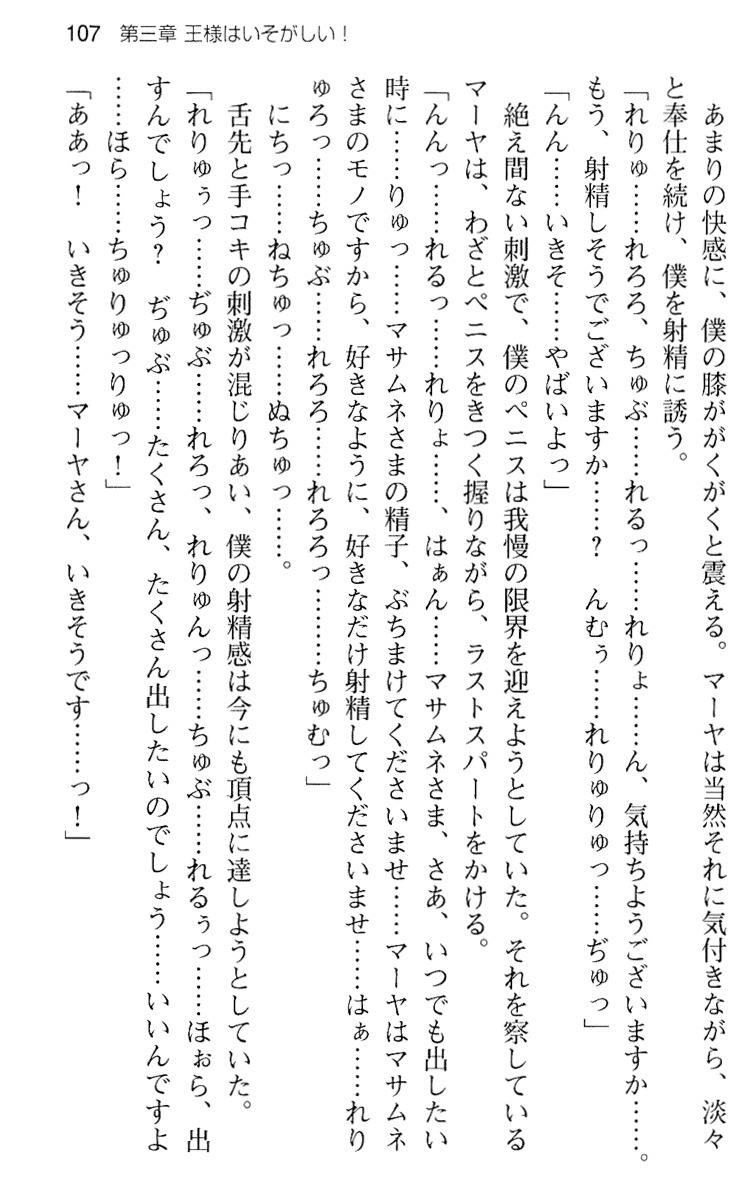 107 第三章 王様はいそがしい！
あまりの快感に、僕の膝ががくがくと震える。マーヤは当然それに気付きながら、淡々
と奉仕を続け、僕を射精に誘う。
「れりゅ……れろろ、ちゅぶ……れるっ……れりょ……ん、気持ちようございますか……。
もう、射精しそうでございますか……？　んむぅ……れりゅりゅっ……ぢゅっ」
「んん……いきそ……やばいよっ」
絶え間ない刺激で、僕のペニスは我慢の限界を迎えようとしていた。それを察している
マーヤは、わざとペニスをきつく握りながら、ラストスパートをかける。
「んんっ……れるっ……れりょ……、はぁん……マサムネさま、さあ、いつでも出したい
時に……りゅっ……マサムネさまの精子、ぶちまけてくださいませ……マーヤはマサムネ
さまのモノですから、好きなように、好きなだけ射精してくださいませ……はぁ……れり
ゅろっ……ちゅぶ……れろろ……れろろっ………ちゅむっ」
にちっ……ねちゅっ……ぬちゅっ……。
舌先と手コキの刺激が混じりあい、僕の射精感は今にも頂点に達しようとしていた。
「れりゅぅっ……ぢゅぶ……れろっ、れりゅんっ……ちゅぶ……れるぅっ……ほぉら、出
すんでしょう？　ぢゅぶ……たくさん、たくさん出したいのでしょう……いいんですよ
……ほら……ちゅりゅっりゅっ！」
「ああっ！　いきそう……マーヤさん、いきそうです……っ！」